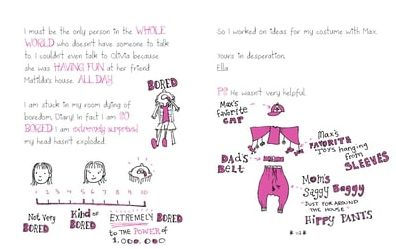 I must be the only person in the WHOLE
WORLD who doesn't have someone to talk
to. I couldn't even talk to Olivia because
she was HAVING FUN at her friend
Matilda's house. ALL DAY.
I am stuck in my room dying of
boredom, Diary! In fact I am SO
BORED I am extremely surprised
my head hasn't exploded.
BORED
1 2 3 4 5 6 7 8 9 10
Not Very
BORED
Kind of
BORED
EXTREMELY BORED
to THE POWER of
1,000,000
So I worked on ideas for my costume with Max.
Yours in desperation,
Ella
PS He wasn't very helpful.
Max's
favorite
CAP
Max's
FAVORITE
TOYS hanging
from
SLEEVES
DAD's
BELT
Mom's
Saggy Baggy
"JUST FOR AROUND
THE HOUSE"
HIPPY PANTS